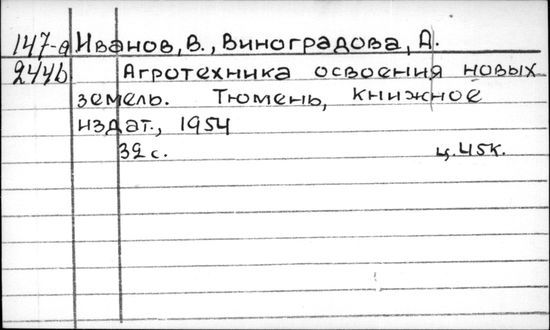 147-а Иванов, В., Виноградова, А.
2446 Агротехника освоения новых
земель. Тюмень, книжное
издат., 1954
32 с. ц. 45к.